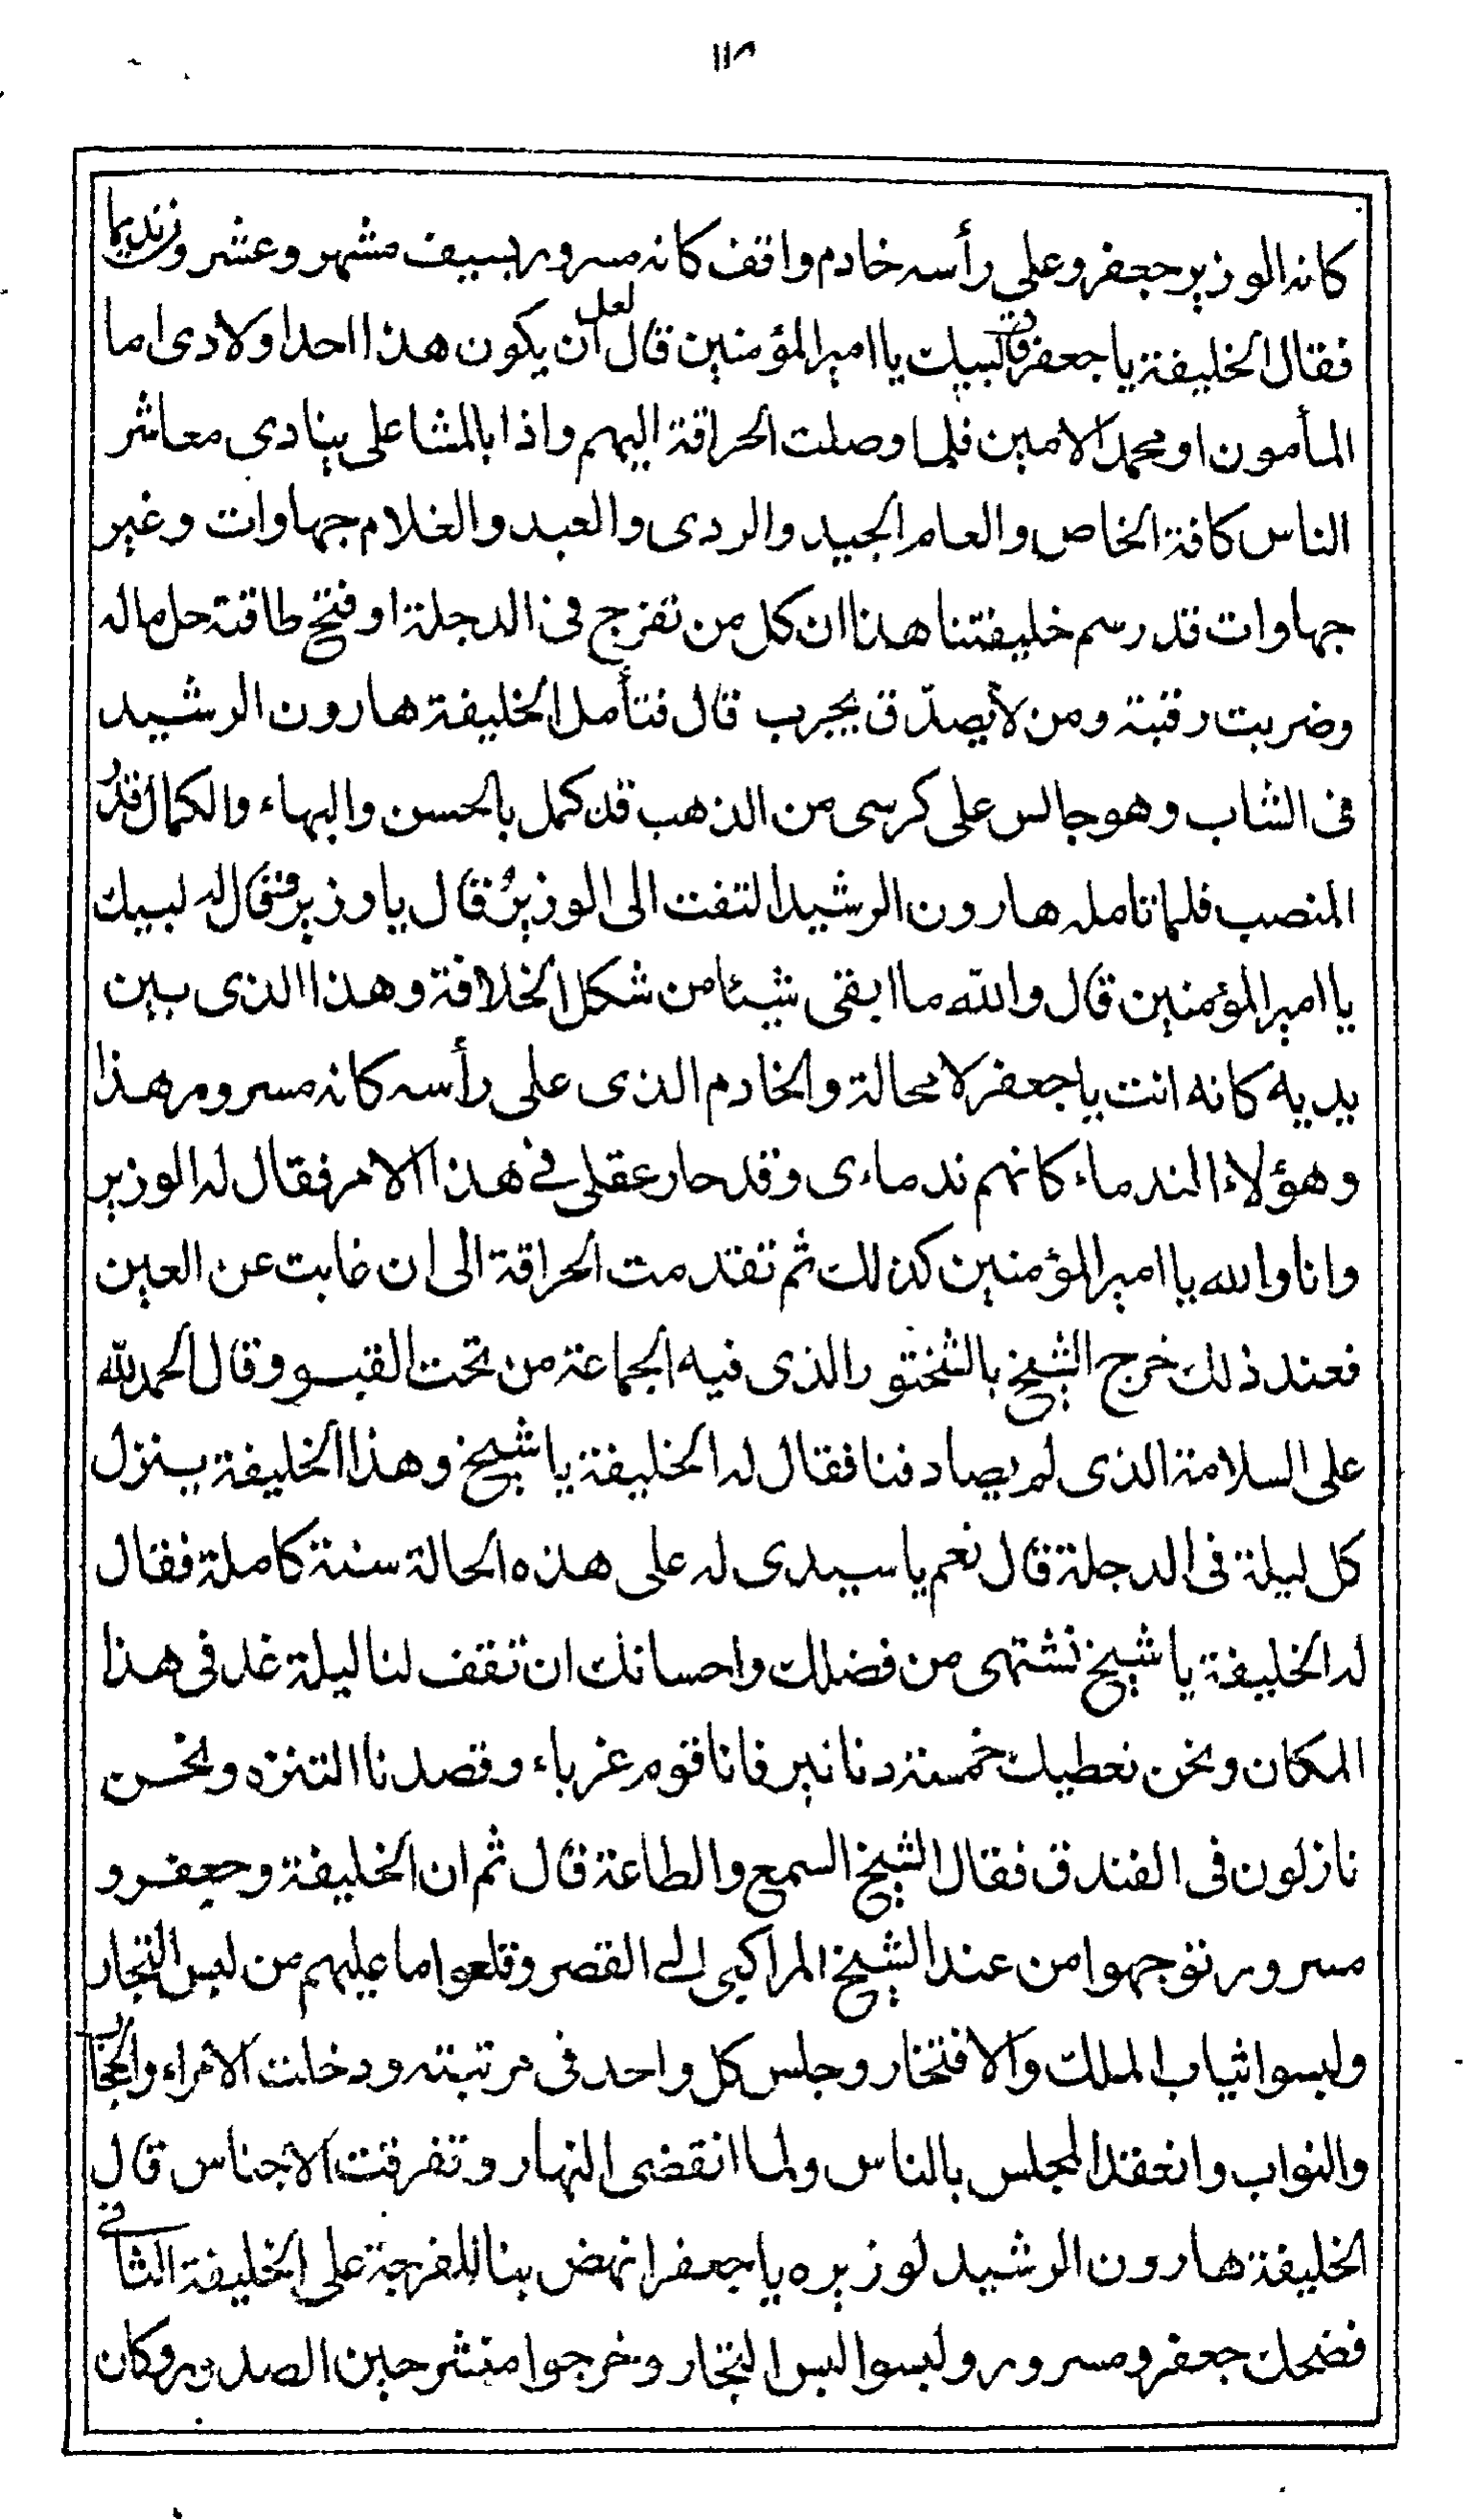 ١١٣
كانه الوزير جعفر وعلى رأسه خادم واقف كانه مسرور بسيف مشهر وعشرون نديما
فقال الخليفة يا جعفر قال لبيك يا امير المؤمنين قال لعل ان يكون هذا احد اولادى اما
المأمون او محمد الامين فلما وصلت الحراقة اليهم واذا بالمشاعلى ينادى معاشر
الناس كافة الخاص والعام الجيد والردى والعبد والغلام جهاوات وغير
جهاوات قد رسم خليفتنا هذا ان كل من تفرج فى الدجلة او فتح طاقته حل ماله
وضربت رقبته ومن لا يصدّق يجرب قال فتأمل الخليفة هارون الرشيد
فى الشاب وهو جالس على كرسى من الذهب قد كمل بالحسن والبهاء والكمال قدرُ
المنصب فلما تامله هارون الرشيد التفت الى الوزير وقال يا وزير فقال له لبيك
يا امير المؤمنين قال والله ما ابقى شيئا من شكل الخلافة وهذا الذى بين
يديه كانه انت يا جعفر لا محالة والخادم الذى على رأسه كانه مسرور هذا
وهؤلاء الندماء كانهم ندماءى وقد حار عقلى فى هذا الامر فقال له الوزير
وانا والله يا امير المؤمنين كذلك ثم تقدمت الحراقة الى ان غابت عن العين
فعند ذلك خرج الشيخ بالشختور الذى فيه الجماعة من تحت القبو وقال الحمد لله
على السلامة الذى لم يصادفنا فقال له الخليفة يا شيخ وهذا الخليفة ينزل
كل ليلة فى الدجلة قال نعم يا سيدى له على هذه الحالة سنة كاملة فقال
له الخليفة يا شيخ نشتهى من فضلك واحسانك ان تقف لنا ليلة غد فى هذا
المكان ونحن نعطيك خمسة دنانير فانا قوم غرباء وقصدنا التنزه ونحن
نازلون فى الفندق فقال الشيخ السمع والطاعة قال ثم ان الخليفة وجعفر و
مسرور توجهوا من عند الشيخ المراكبى الى القصر وقلعوا ما عليهم من لبس التجار
ولبسوا ثياب الملك والافتخار وجلس كل واحد فى مرتبته ودخلت الامراء والحجاب
والنواب وانعقد المجلس بالناس ولما انقضى النهار وتفرقت الاجناس قال
الخليفة هارون الرشيد لوزيره يا جعفر انهض بنا للفرجة على الخليفة الثانى
فضحك جعفر ومسرور ولبسوا لبس التجار وخرجوا منشرحين الصدور وكان